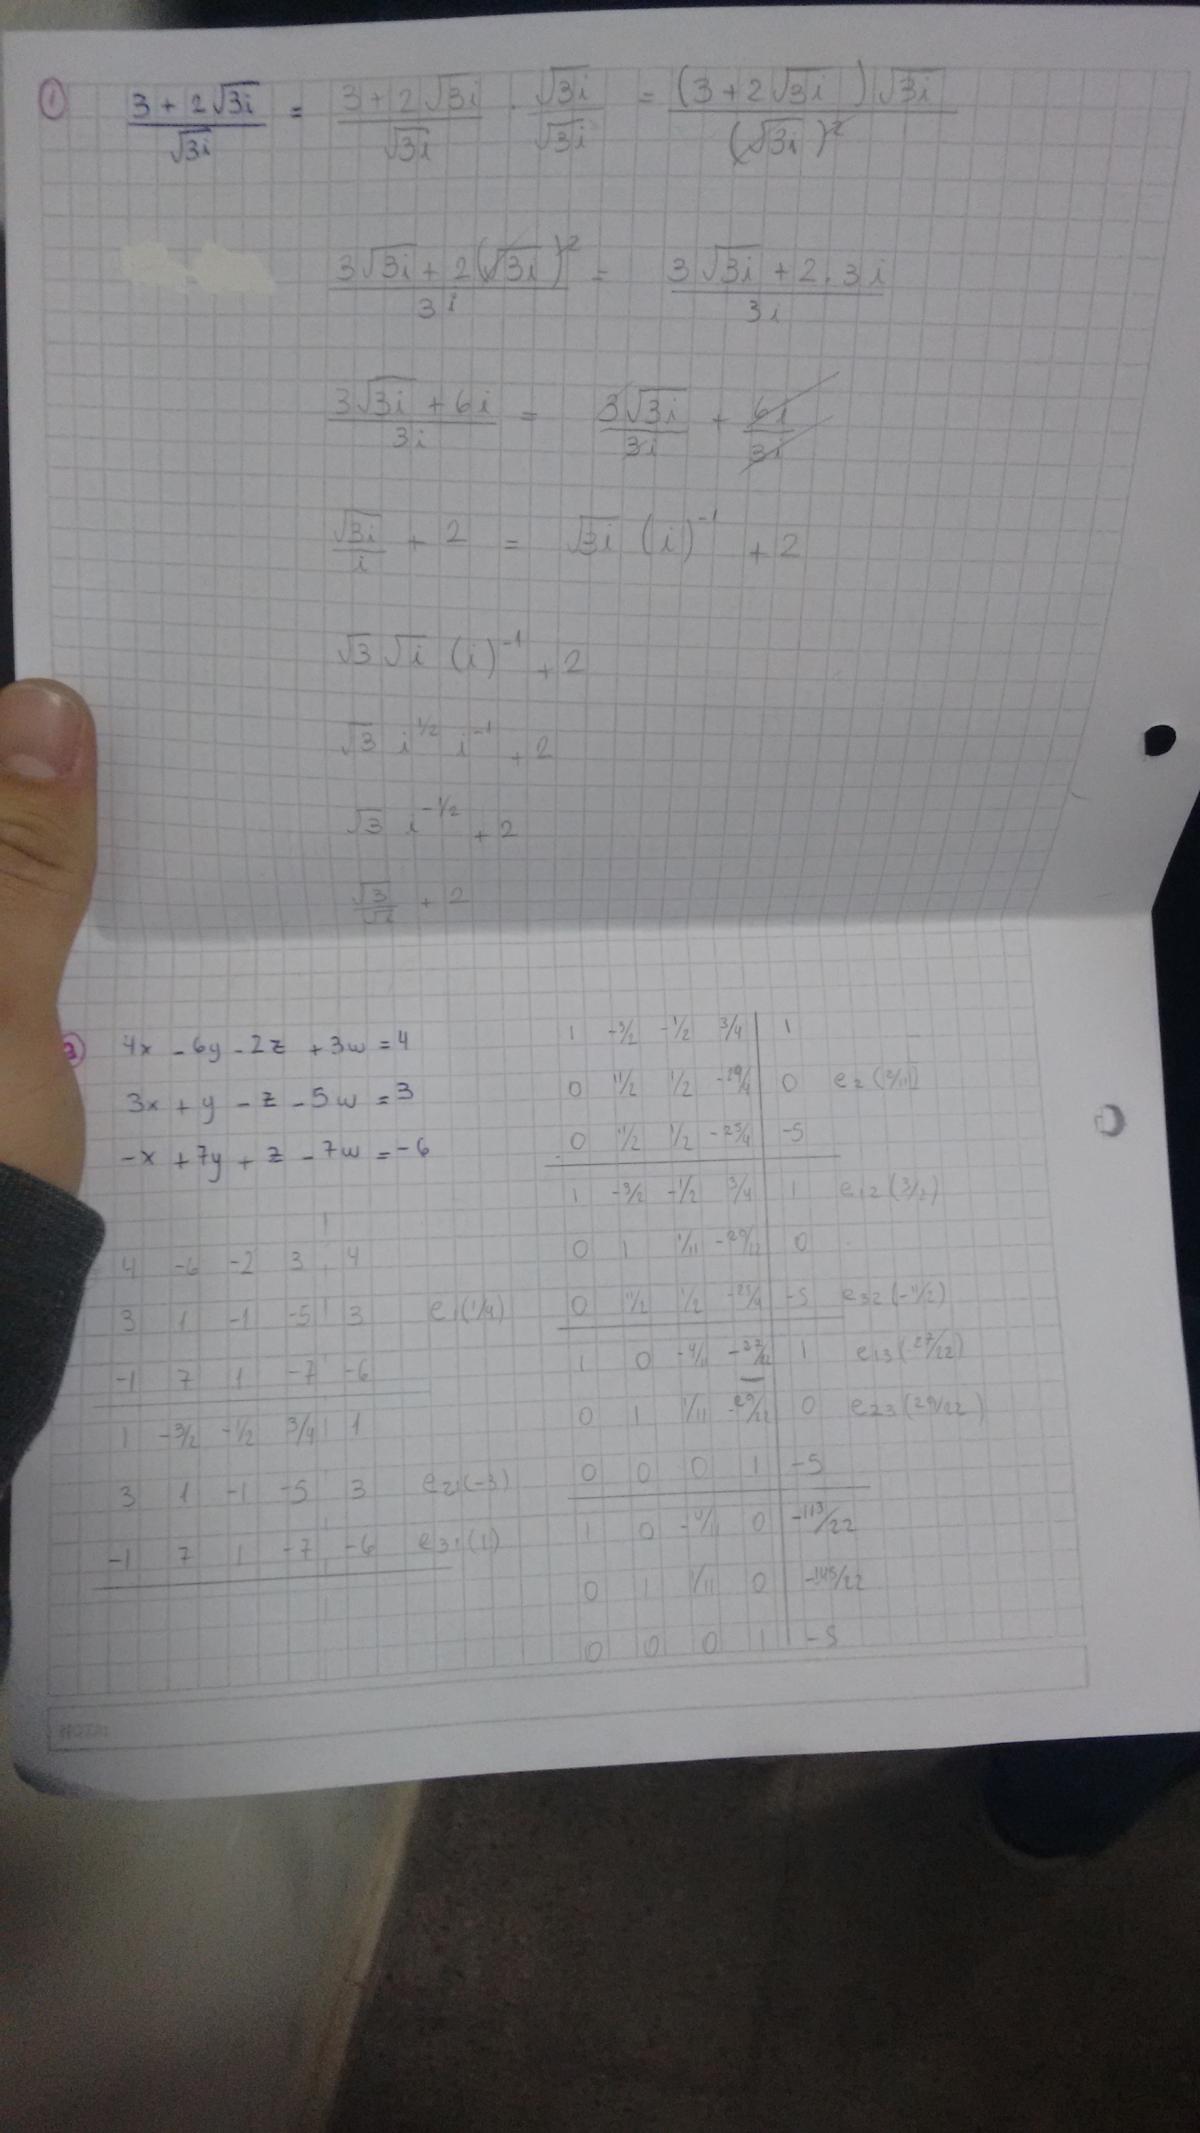 1 (3 + 2√3i)/√3i = (3 + 2√3i)/√3i · √3i/√3i = (3 + 2√3i)√3i/(√3i)²
(3√3i + 2(√3i)²)/3i = (3√3i + 2.3i)/3i
(3√3i + 6i)/3i = 3√3i/3i + 6i/3i
√3i/i + 2 = √3i (i)⁻¹ + 2
√3 √i (i)⁻¹ + 2
√3 i^1/2 i⁻¹ + 2
√3 i^-1/2 + 2
√3/√i + 2
3 4x - 6y - 2z + 3w = 4
3x + y - z - 5w = 3
-x + 7y + z - 7w = -6
4 -6 -2 3 4
3 1 -1 -5 3 e1(1/4)
-1 7 1 -7 -6
1 -3/2 -1/2 3/4 1
3 1 -1 -5 3 e21(-3)
-1 7 1 -7 -6 e31(1)
1 -3/2 -1/2 3/4 1
0 11/2 1/2 -29/4 0 e2(2/11)
0 11/2 1/2 -25/4 -5
1 -3/2 -1/2 3/4 1 e12(3/2)
0 1 1/11 -29/22 0
0 11/2 1/2 -25/4 -5 e32(-11/2)
1 0 -4/11 -27/22 1 e13(27/22)
0 1 1/11 -29/22 0 e23(29/22)
0 0 0 1 -5
1 0 -4/11 0 -113/22
0 1 1/11 0 -145/22
0 0 0 1 -5
NOTA: